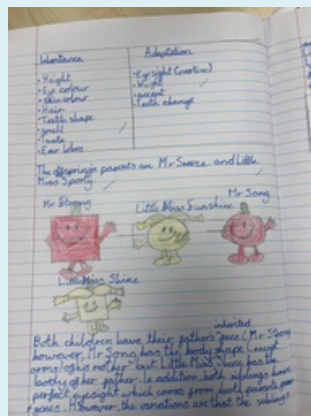 Inheritance
Adaptation
• Height
• Eye colour
• skin colour
• Hair
• Teeth shape
• smell
• taste
• Ear lobes
• Eyesight (overtime)
• Weight
• accent
• Teeth change
The offsprings parents are Mr Sneeze and Little
Miss Sporty.
Mr Strong
Little Miss Sunshine
Mr Song
Little Miss Shine
inherited
Both children have their fathers face (Mr Strong
however, Mr Song has the body shape (except
arms) of his mother but Little Miss Shine has the
body of her father. In addition, both siblings have
perfect eyesight which comes from both parents
genes. However, the variations are that the siblings